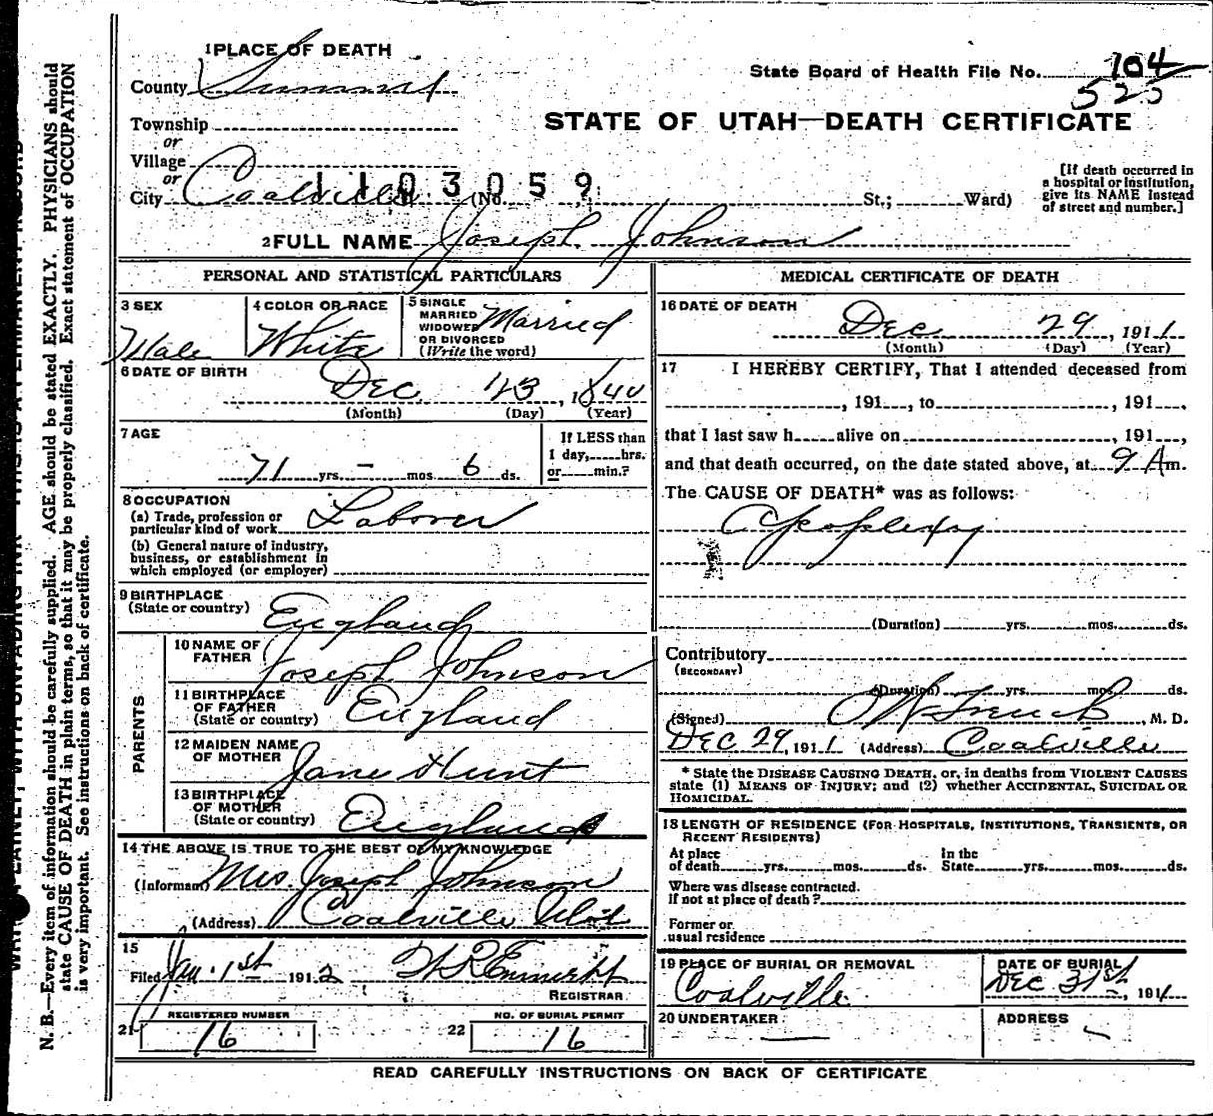 1 PLACE OF DEATH
County Summit
State Board of Health File No. 104
525
Township
or
Village
or
City Coalville (No. St.; Ward)
1103059
STATE OF UTAH—DEATH CERTIFICATE
[If death occurred in
a hospital or institution,
give its NAME instead
of street and number.]
2 FULL NAME Joseph Johnson
PERSONAL AND STATISTICAL PARTICULARS
3 SEX
Male
4 COLOR OR RACE
White
5 SINGLE
MARRIED
WIDOWED
OR DIVORCED
(Write the word)
Married
6 DATE OF BIRTH
Dec 23, 1840
(Month) (Day) (Year)
7 AGE
71 yrs. – mos. 6 ds.
If LESS than
1 day, hrs.
or min.?
8 OCCUPATION
(a) Trade, profession or
particular kind of work Laborer
(b) General nature of industry,
business, or establishment in
which employed (or employer)
9 BIRTHPLACE
(State or country)
England
PARENTS
10 NAME OF
FATHER
Joseph Johnson
11 BIRTHPLACE
OF FATHER
(State or country)
England
12 MAIDEN NAME
OF MOTHER
Jane Hunt
13 BIRTHPLACE
OF MOTHER
(State or country)
England
14 THE ABOVE IS TRUE TO THE BEST OF MY KNOWLEDGE
(Informant) Mrs. Joseph Johnson
(Address) Coalville Utah
15
Filed Jan. 1st 1912
REGISTRAR
REGISTERED NUMBER
21 16
NO. OF BURIAL PERMIT
22 16
MEDICAL CERTIFICATE OF DEATH
16 DATE OF DEATH
Dec 29, 1911
(Month) (Day) (Year)
17 I HEREBY CERTIFY, That I attended deceased from
, 191 , to , 191 ,
that I last saw h alive on , 191 ,
and that death occurred, on the date stated above, at 9 Am.
The CAUSE OF DEATH* was as follows:
Apoplexy
(Duration) yrs. mos. ds.
Contributory
(SECONDARY)
(Duration) yrs. mos. ds.
(Signed) , M. D.
Dec 29, 1911 (Address) Coalville
* State the DISEASE CAUSING DEATH, or, in deaths from VIOLENT CAUSES
state (1) MEANS OF INJURY; and (2) whether ACCIDENTAL, SUICIDAL OR
HOMICIDAL.
18 LENGTH OF RESIDENCE (FOR HOSPITALS, INSTITUTIONS, TRANSIENTS, OR
RECENT RESIDENTS)
At place
of death yrs. mos. ds.
In the
State yrs. mos. ds.
Where was disease contracted.
If not at place of death?
Former or
usual residence
19 PLACE OF BURIAL OR REMOVAL
Coalville
DATE OF BURIAL
Dec 31st, 1911
20 UNDERTAKER
ADDRESS
READ CAREFULLY INSTRUCTIONS ON BACK OF CERTIFICATE
N. B.—Every item of information should be carefully supplied. AGE should be stated EXACTLY. PHYSICIANS should
state CAUSE OF DEATH in plain terms, so that it may be properly classified. Exact statement of OCCUPATION
is very important. See instructions on back of certificate.